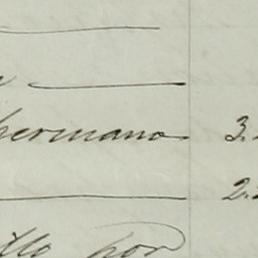 hermano 3.
2.
llo por